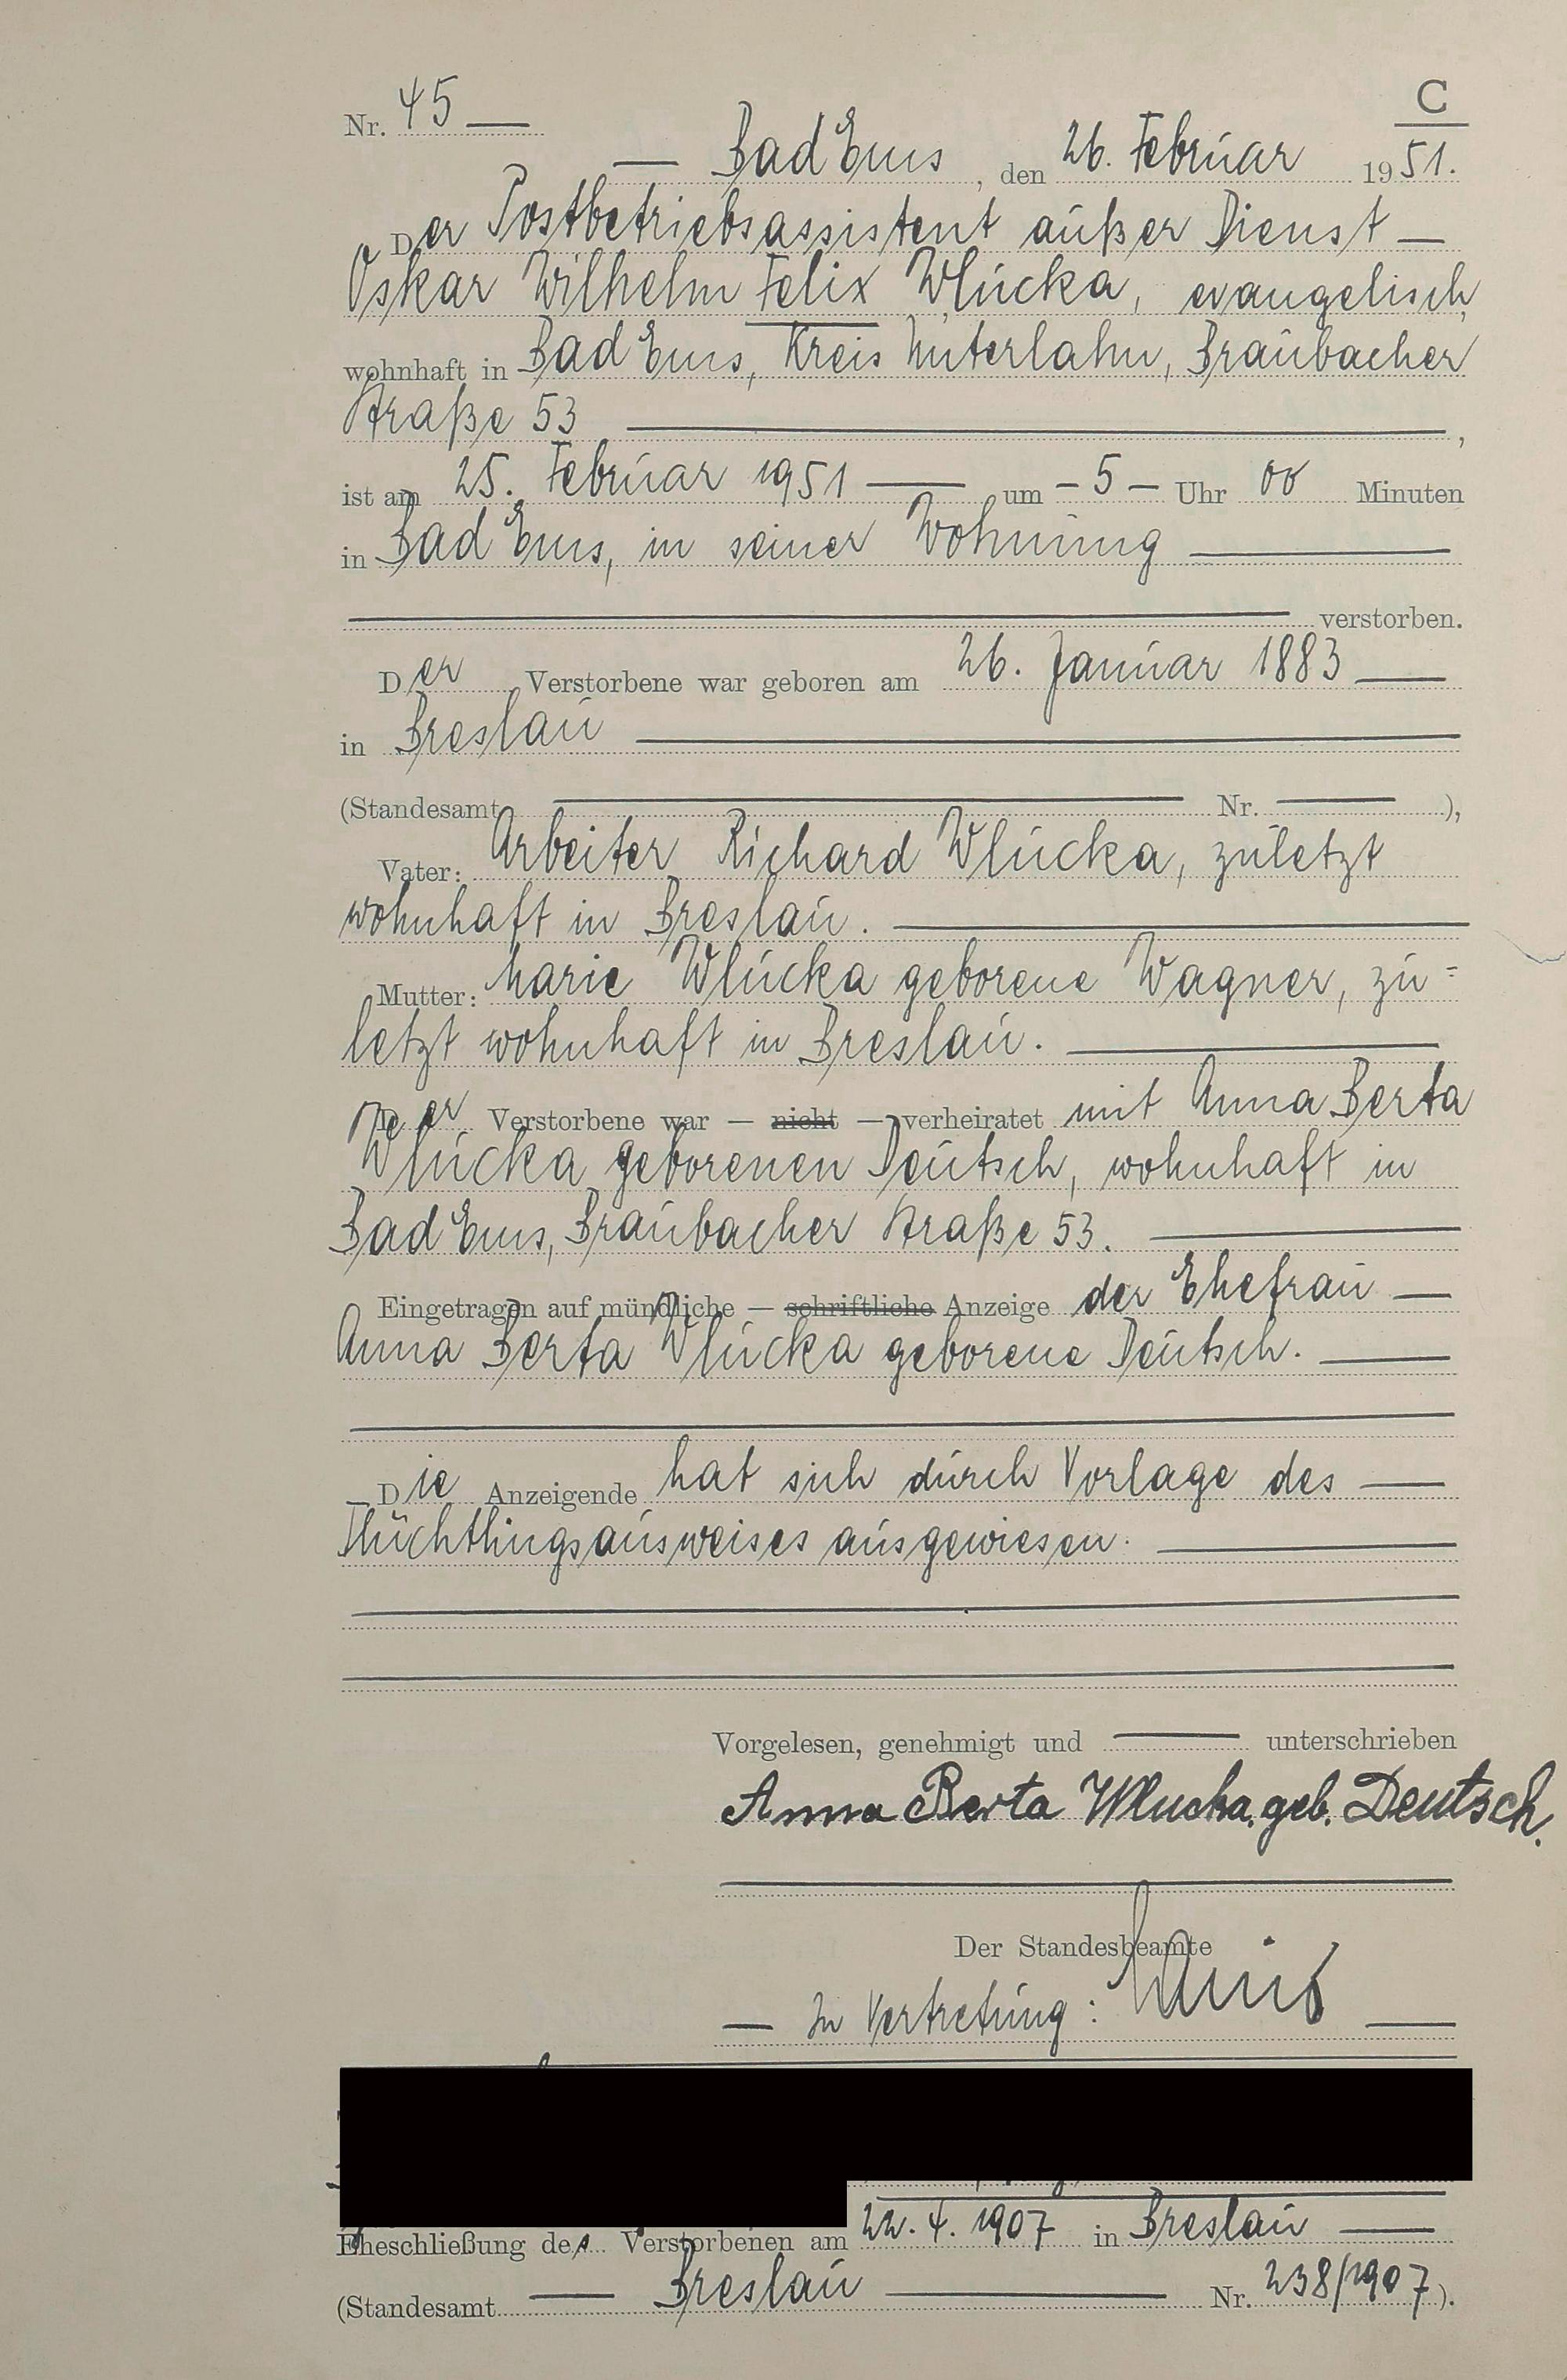 C
Nr. 45 —
— Bad Ems, den 26. Februar 1951.
Der Postbetriebsassistent außer Dienst —
Oskar Wilhelm Felix Wlucka, evangelisch,
wohnhaft in Bad Ems, Kreis Unterlahn, Braubacher
Straße 53 —,
ist am 25. Februar 1951 — um – 5 – Uhr 00 Minuten
in Bad Ems, in seiner Wohnung —
— verstorben.
Der Verstorbene war geboren am 26. Januar 1883 —
in Breslau —
(Standesamt — Nr. —),
Vater: Arbeiter Richard Wlucka, zuletzt
wohnhaft in Breslau. —
Mutter: Marie Wlucka geborene Wagner, zu=
letzt wohnhaft in Breslau. —
Der Verstorbene war — nicht — verheiratet mit Anna Berta
Wlucka geborenen Deutsch, wohnhaft in
Bad Ems, Braubacher Straße 53. —
Eingetragen auf mündliche — schriftliche Anzeige der Ehefrau —
Anna Berta Wlucka geborene Deutsch. —
Die Anzeigende hat sich durch Vorlage des —
Flüchtlingsausweises ausgewiesen. —
Vorgelesen, genehmigt und — unterschrieben
Anna Berta Wlucka, geb. Deutsch.
Der Standesbeamte
— In Vertretung: —
Eheschließung des Verstorbenen am 22. 4. 1907 in Breslau —
(Standesamt — Breslau — Nr. 238/1907).